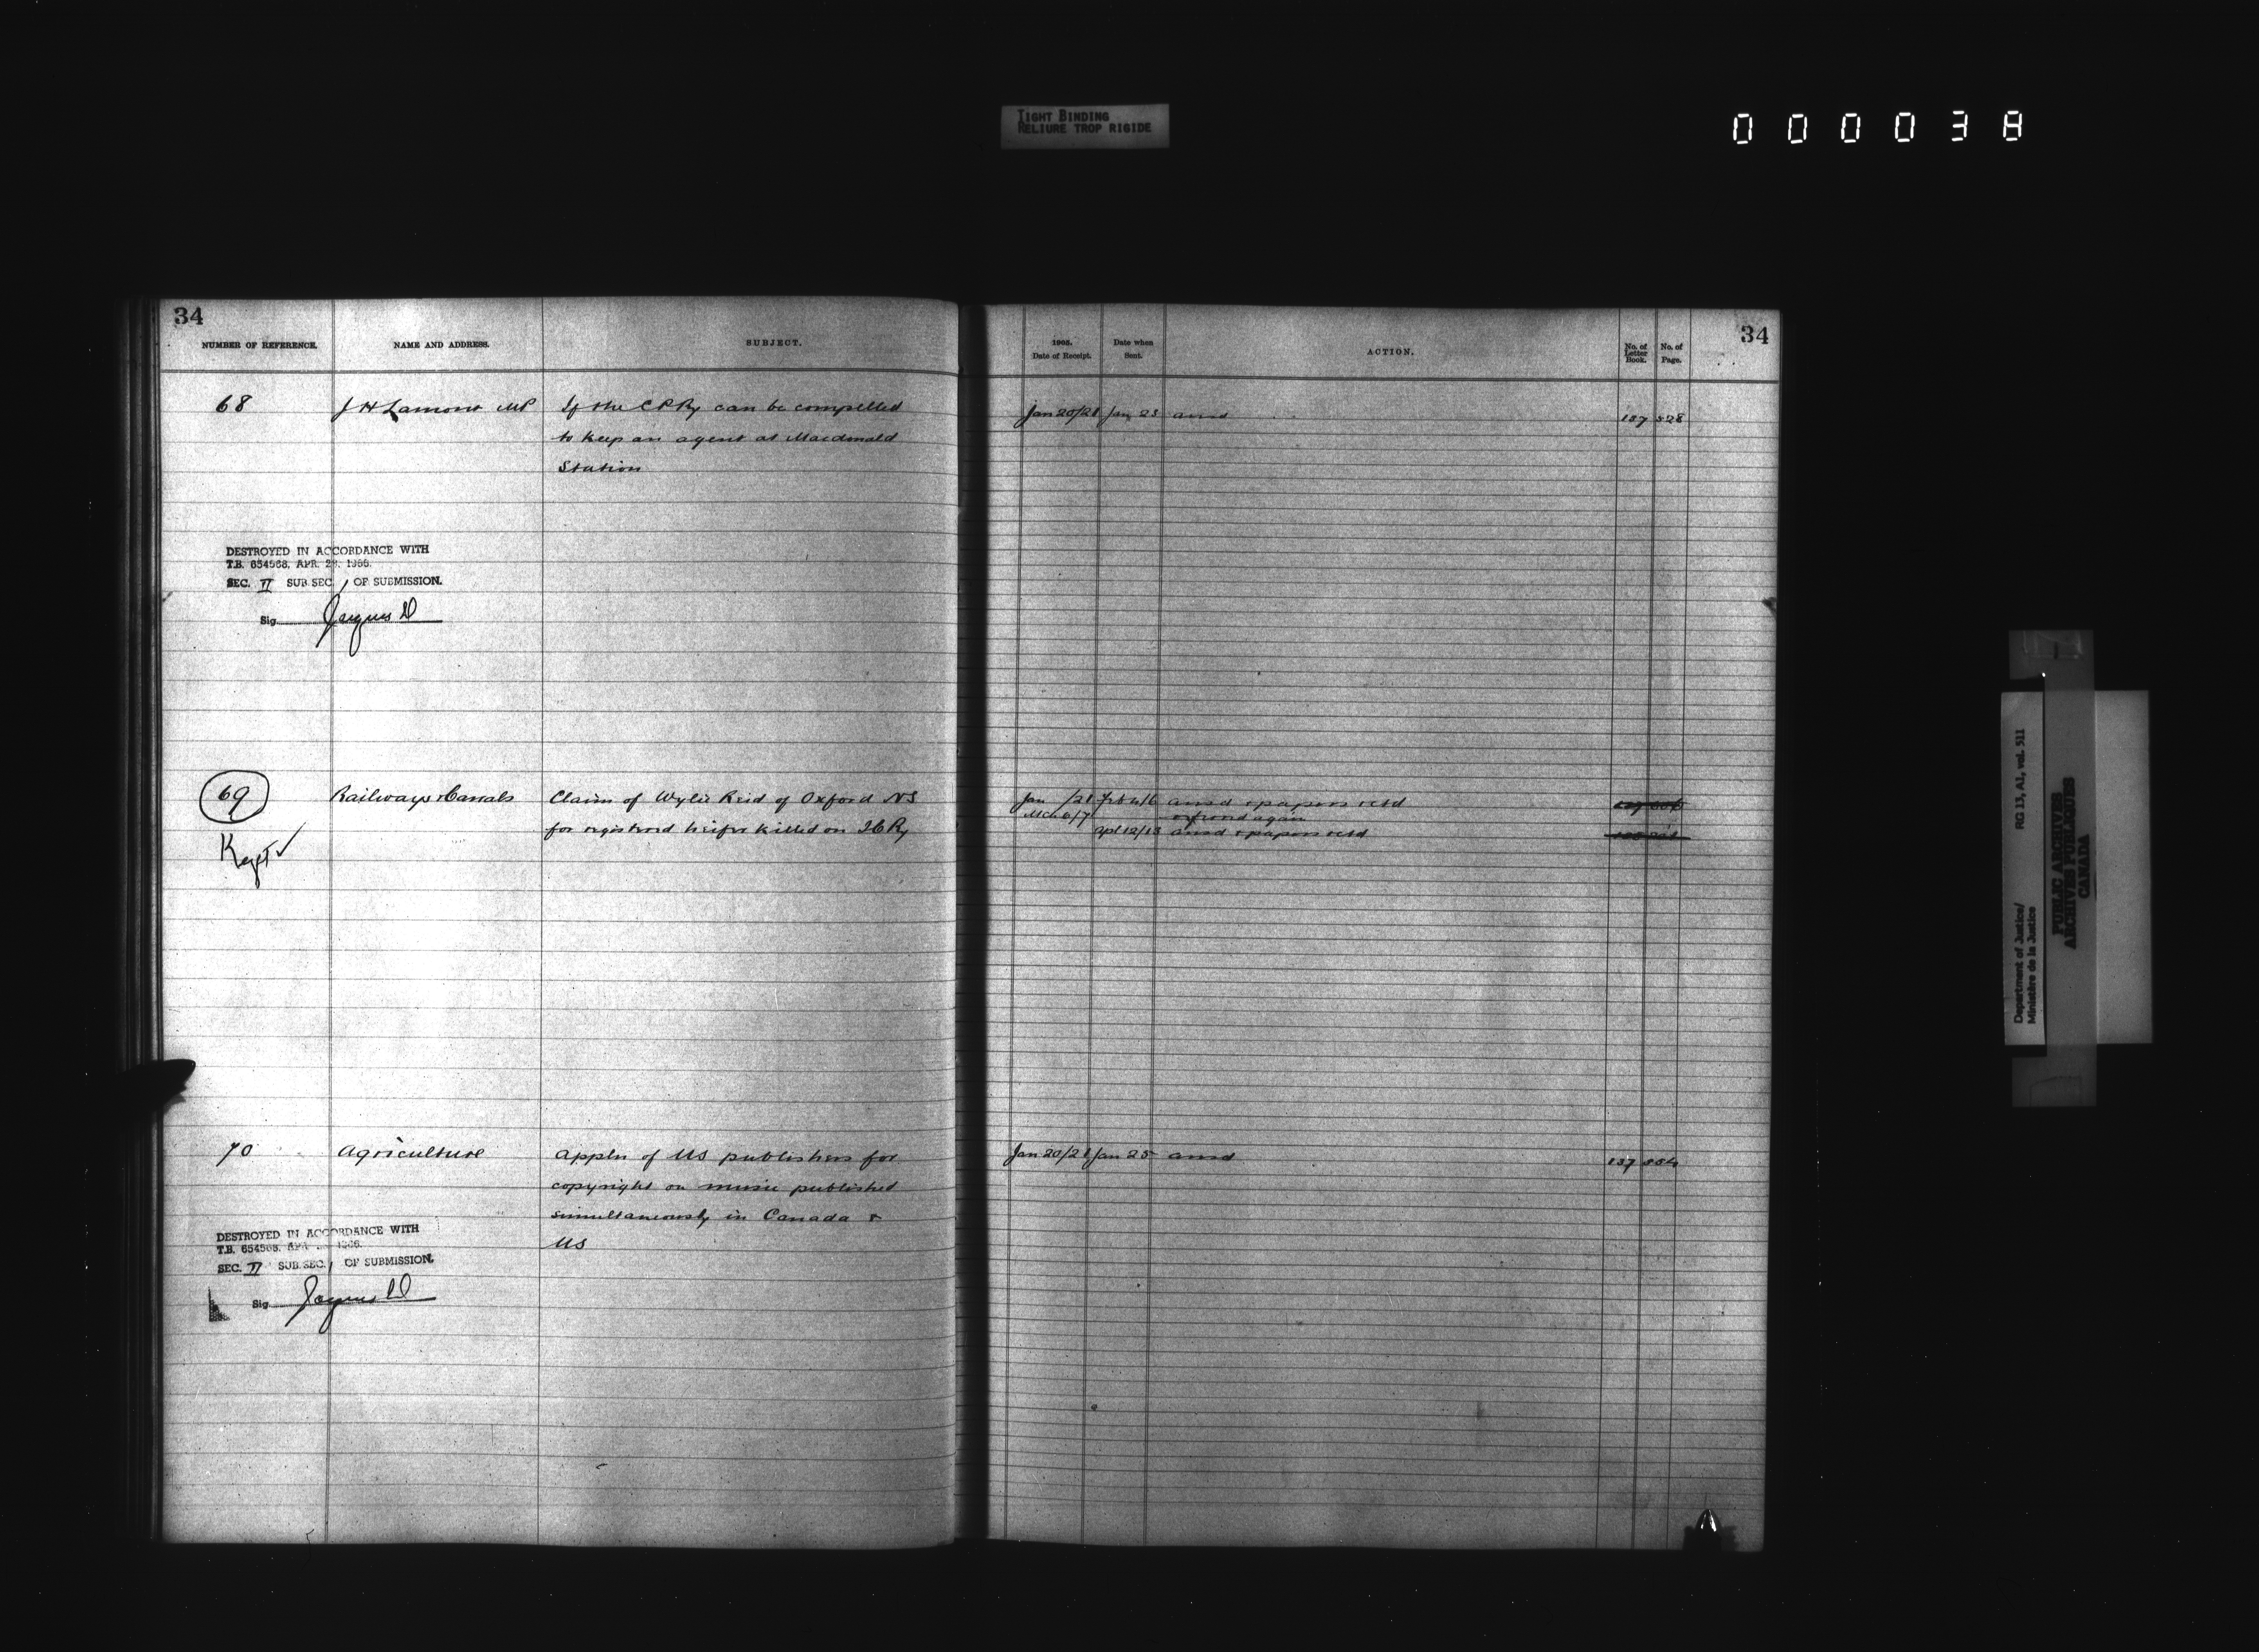 TIGHT BINDING
RELIURE TROP RIGIDE
000038
34
NUMBER OF REFERENCE.
NAME AND ADDRESS.
SUBJECT.
68
J H Lamont MP
If the C P Ry can be compelled
to keep an agent at Macdonald
Station
DESTROYED IN ACCORDANCE WITH
T.B. 654568, APR. 28, 1966.
SEC. II SUB SEC. 1 OF SUBMISSION.
Sig
69
Kept ✓
Railways & Canals
Claim of Wylie Reid of Oxford NS
for registered heifer killed on I C Ry
70
Agriculture
Appln of US publishers for
copyright on music published
simultaneously in Canada &
US
DESTROYED IN ACCORDANCE WITH
T.B. 654568, APR. 1966.
SEC. II SUB SEC. 1 OF SUBMISSION.
Sig
34
1905.
Date of Receipt.
Date when
Sent.
ACTION.
No. of
Letter
Book.
No. of
Page.
Jan 20/21 Jan 23 ansd 137 528
Jan /21 Feb 4/6 ansd & papers retd
Mch 6/7 referred again
Apl 12/13 ansd & papers retd
Jan 20/21 Jan 25 ansd 137
Department of Justice/
Ministère de la Justice
RG 13, A1, vol. 511
PUBLIC ARCHIVES
ARCHIVES PUBLIQUES
CANADA